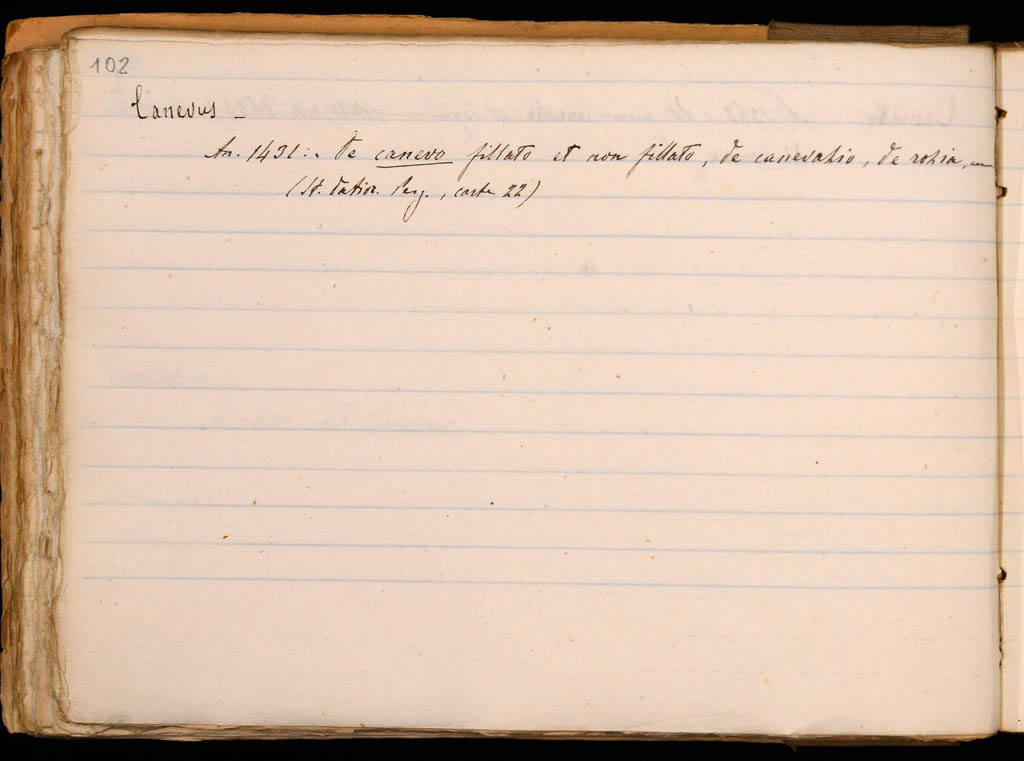 102
Canevus –
An. 1431:. De canevo fillato et non fillato, de canevahio, de rohia,
(St. datior. Reg., carte 22)